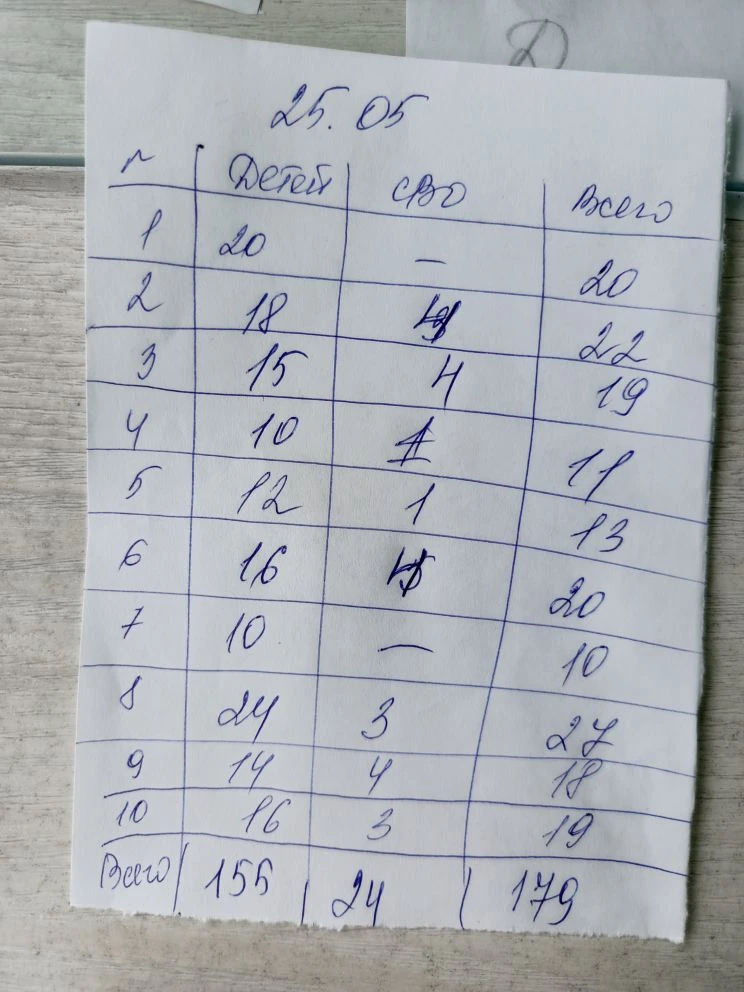 Д
25.05
г Детей СВО Всего
1 20 — 20
2 18 4 22
3 15 4 19
4 10 1 11
5 12 1 13
6 16 4 20
7 10 — 10
8 24 3 27
9 14 4 18
10 16 3 19
Всего 155 24 179